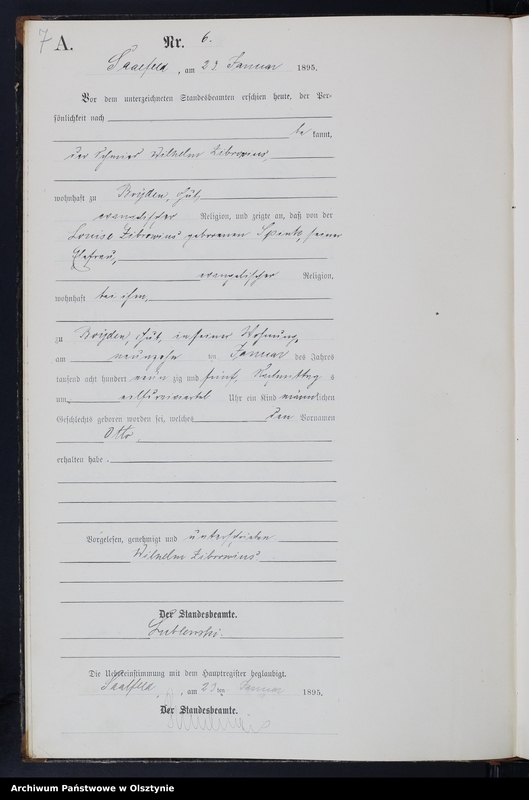 7 A. Nr. 6.
Saalfeld, am 23. Januar 1895.
Vor dem unterzeichneten Standesbeamten erschien heute, der Per-
sönlichkeit nach
be kannt,
der Schmied Wilhelm Zibrowius,
wohnhaft zu Boyden, Gut,
evangelischer Religion, und zeigte an, daß von der
Louise Zibrowius geborenen, seiner
Ehefrau,
evangelischer Religion,
wohnhaft bei ihm,
zu Boyden, Gut, in seiner Wohnung,
am neunzehn ten Januar des Jahres
tausend acht hundert neun zig und fünf, Nachmittag s
um Uhr ein Kind männlichen
Geschlechts geboren worden sei, welches den Vornamen
Otto
erhalten habe.
Vorgelesen, genehmigt und unterschrieben
Wilhelm Zibrowius
Der Standesbeamte.
Die Uebereinstimmung mit dem Hauptregister beglaubigt.
Saalfeld, am 23 ten Januar 1895.
Der Standesbeamte.
Archiwum Państwowe w Olsztynie